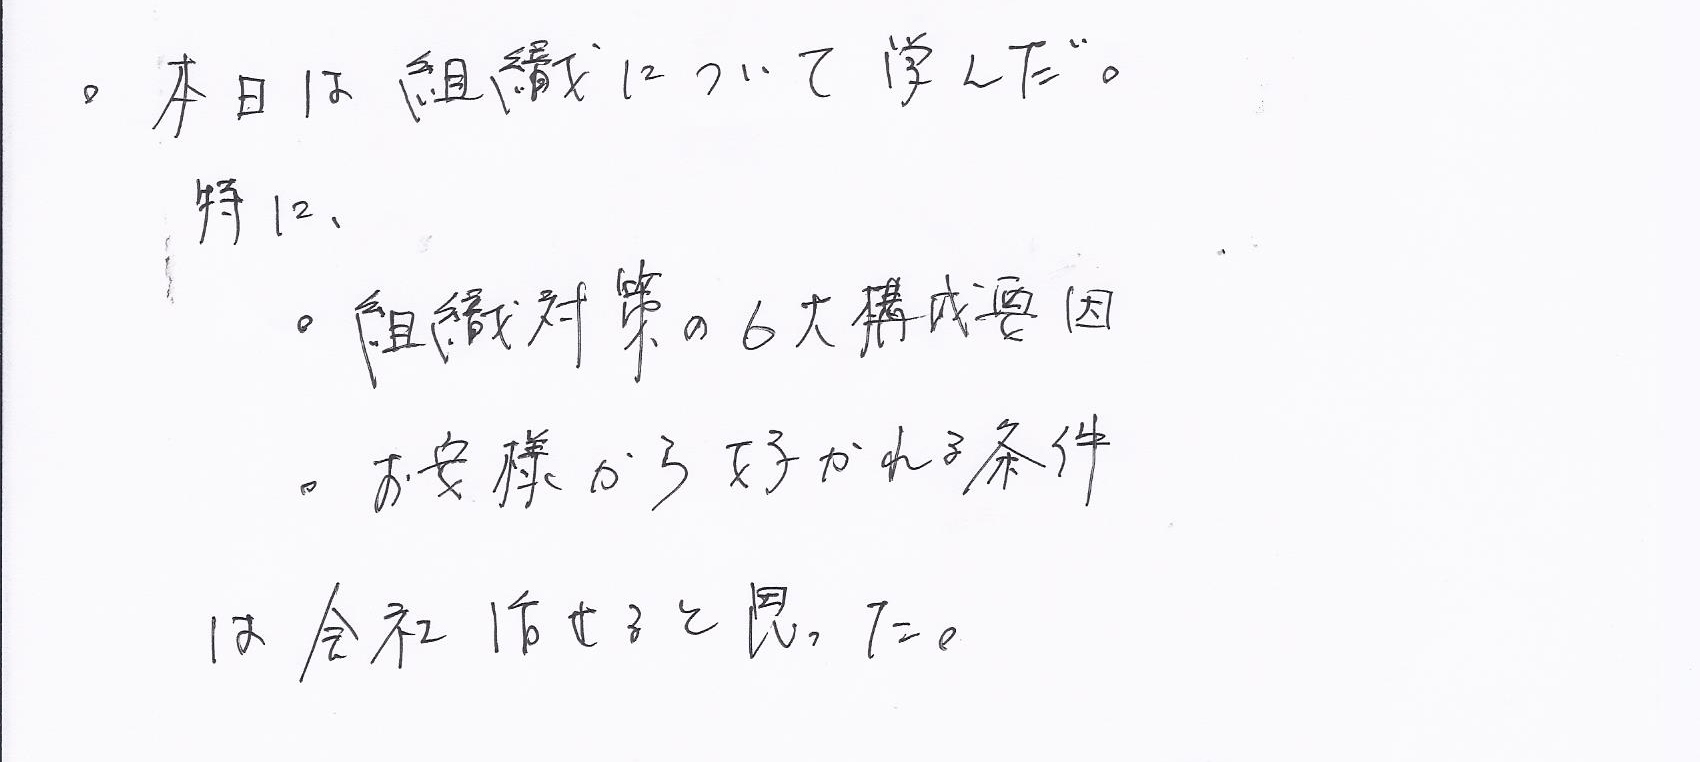 。本日は組織について学んだ。
特に、
。組織対策の6大構成要因
。お客様から好かれる条件
は会社活せると思った。